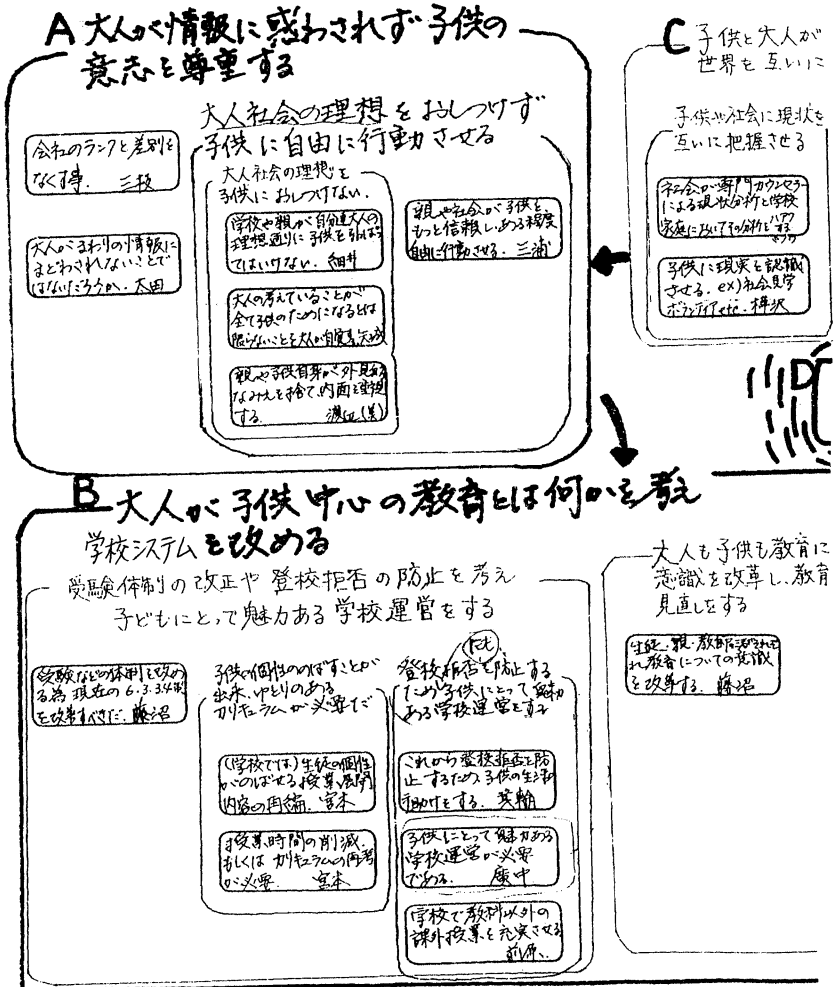 A 大人が情報に惑わされず子供の
意志を尊重する
大人社会の理想をおしつけず
子供に自由に行動させる
会社のランクと差別を
なくす事. 三枝
大人がまわりの情報に
まどわされないことで
はないだろうか. 太田
大人社会の理想を
子供におしつけない.
学校や親が自分達大人の
理想通りに子供を引っぱっ
てはいけない. 細井
大人の考えていることが
全て子供のためになるとは
限らないことを大人が自覚
親や子供自身が外見的
なみえを捨て、内面を重視
する. 渡辺(美)
親や社会が子供を、
もっと信頼しある程度
自由に行動させる. 三浦
C 子供と大人が
世界を互いに
子供や社会に現状を
互いに把握させる
社会が専門カウンセラー
による現状分析と学校
家庭においてその分析と
子供に現実を認識
させる. ex)社会見学
ボランティアetc. 樺沢
D
B 大人が子供中心の教育とは何かを考え
学校システムを改める
受験体制の改正や登校拒否の防止を考え
子どもにとって魅力ある学校運営をする
受験などの体制を改め
る為現在の6.3.3.4制
を改革すべきだ. 藤沼
子供の個性ののばすことが
出来、ゆとりのある
カリキュラムが必要だ
(学校では)生徒の個性
がのばせる授業展開
内容の再編. 宮本
授業時間の削減.
もしくはカリキュラムの再考
が必要. 宮本
登校拒否を防止する
ため子供にとって魅力
ある学校運営をする
これから登校拒否を防
止するため、子供の生活の
手助けをする. 箕輪
子供にとって魅力ある
学校運営が必要
である. 康中
学校で教科以外の
課外授業を充実させる
前原.
大人も子供も教育に
意識を改革し、教育
見直しをする
生徒、親、教育
れ教育についての意識
を改革する. 藤沼